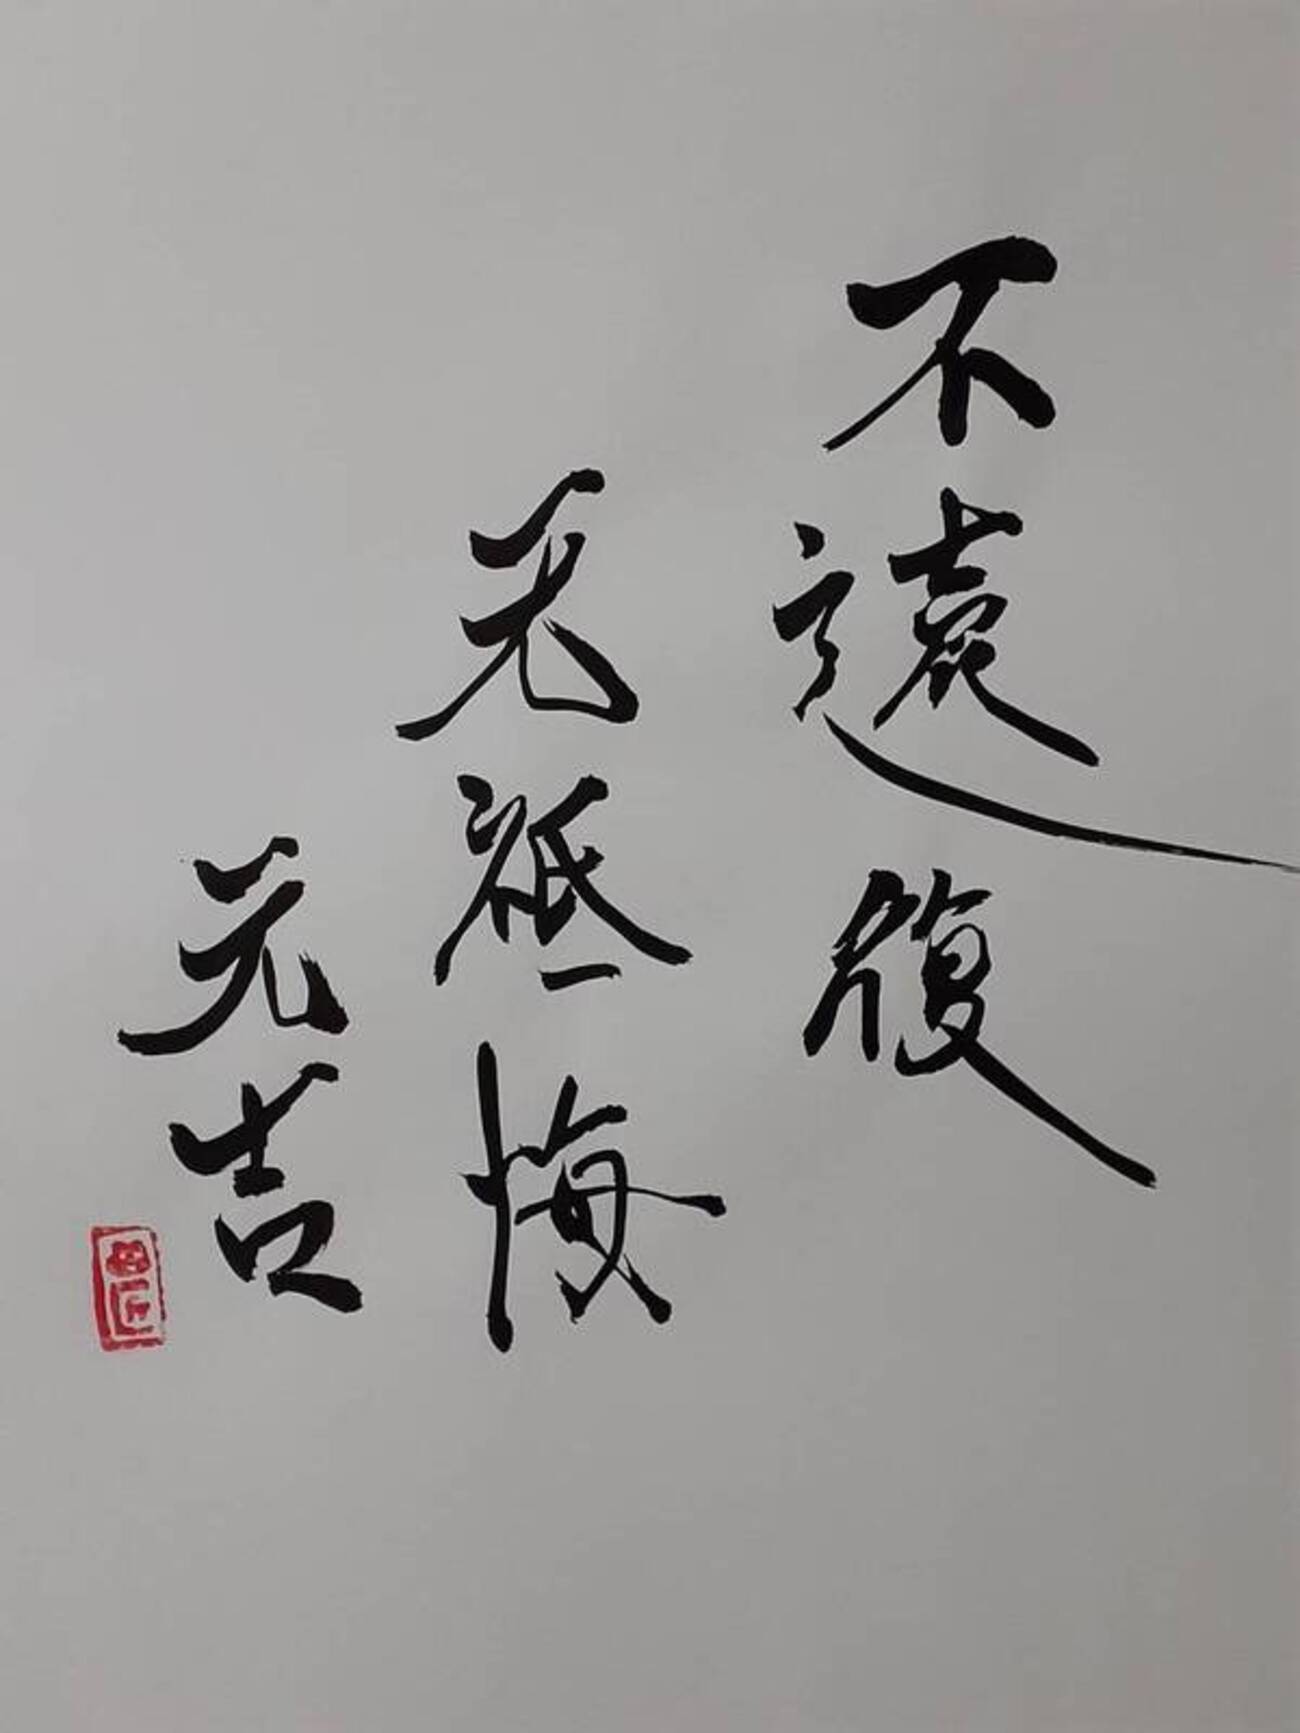 不遠復
无祗悔
元吉